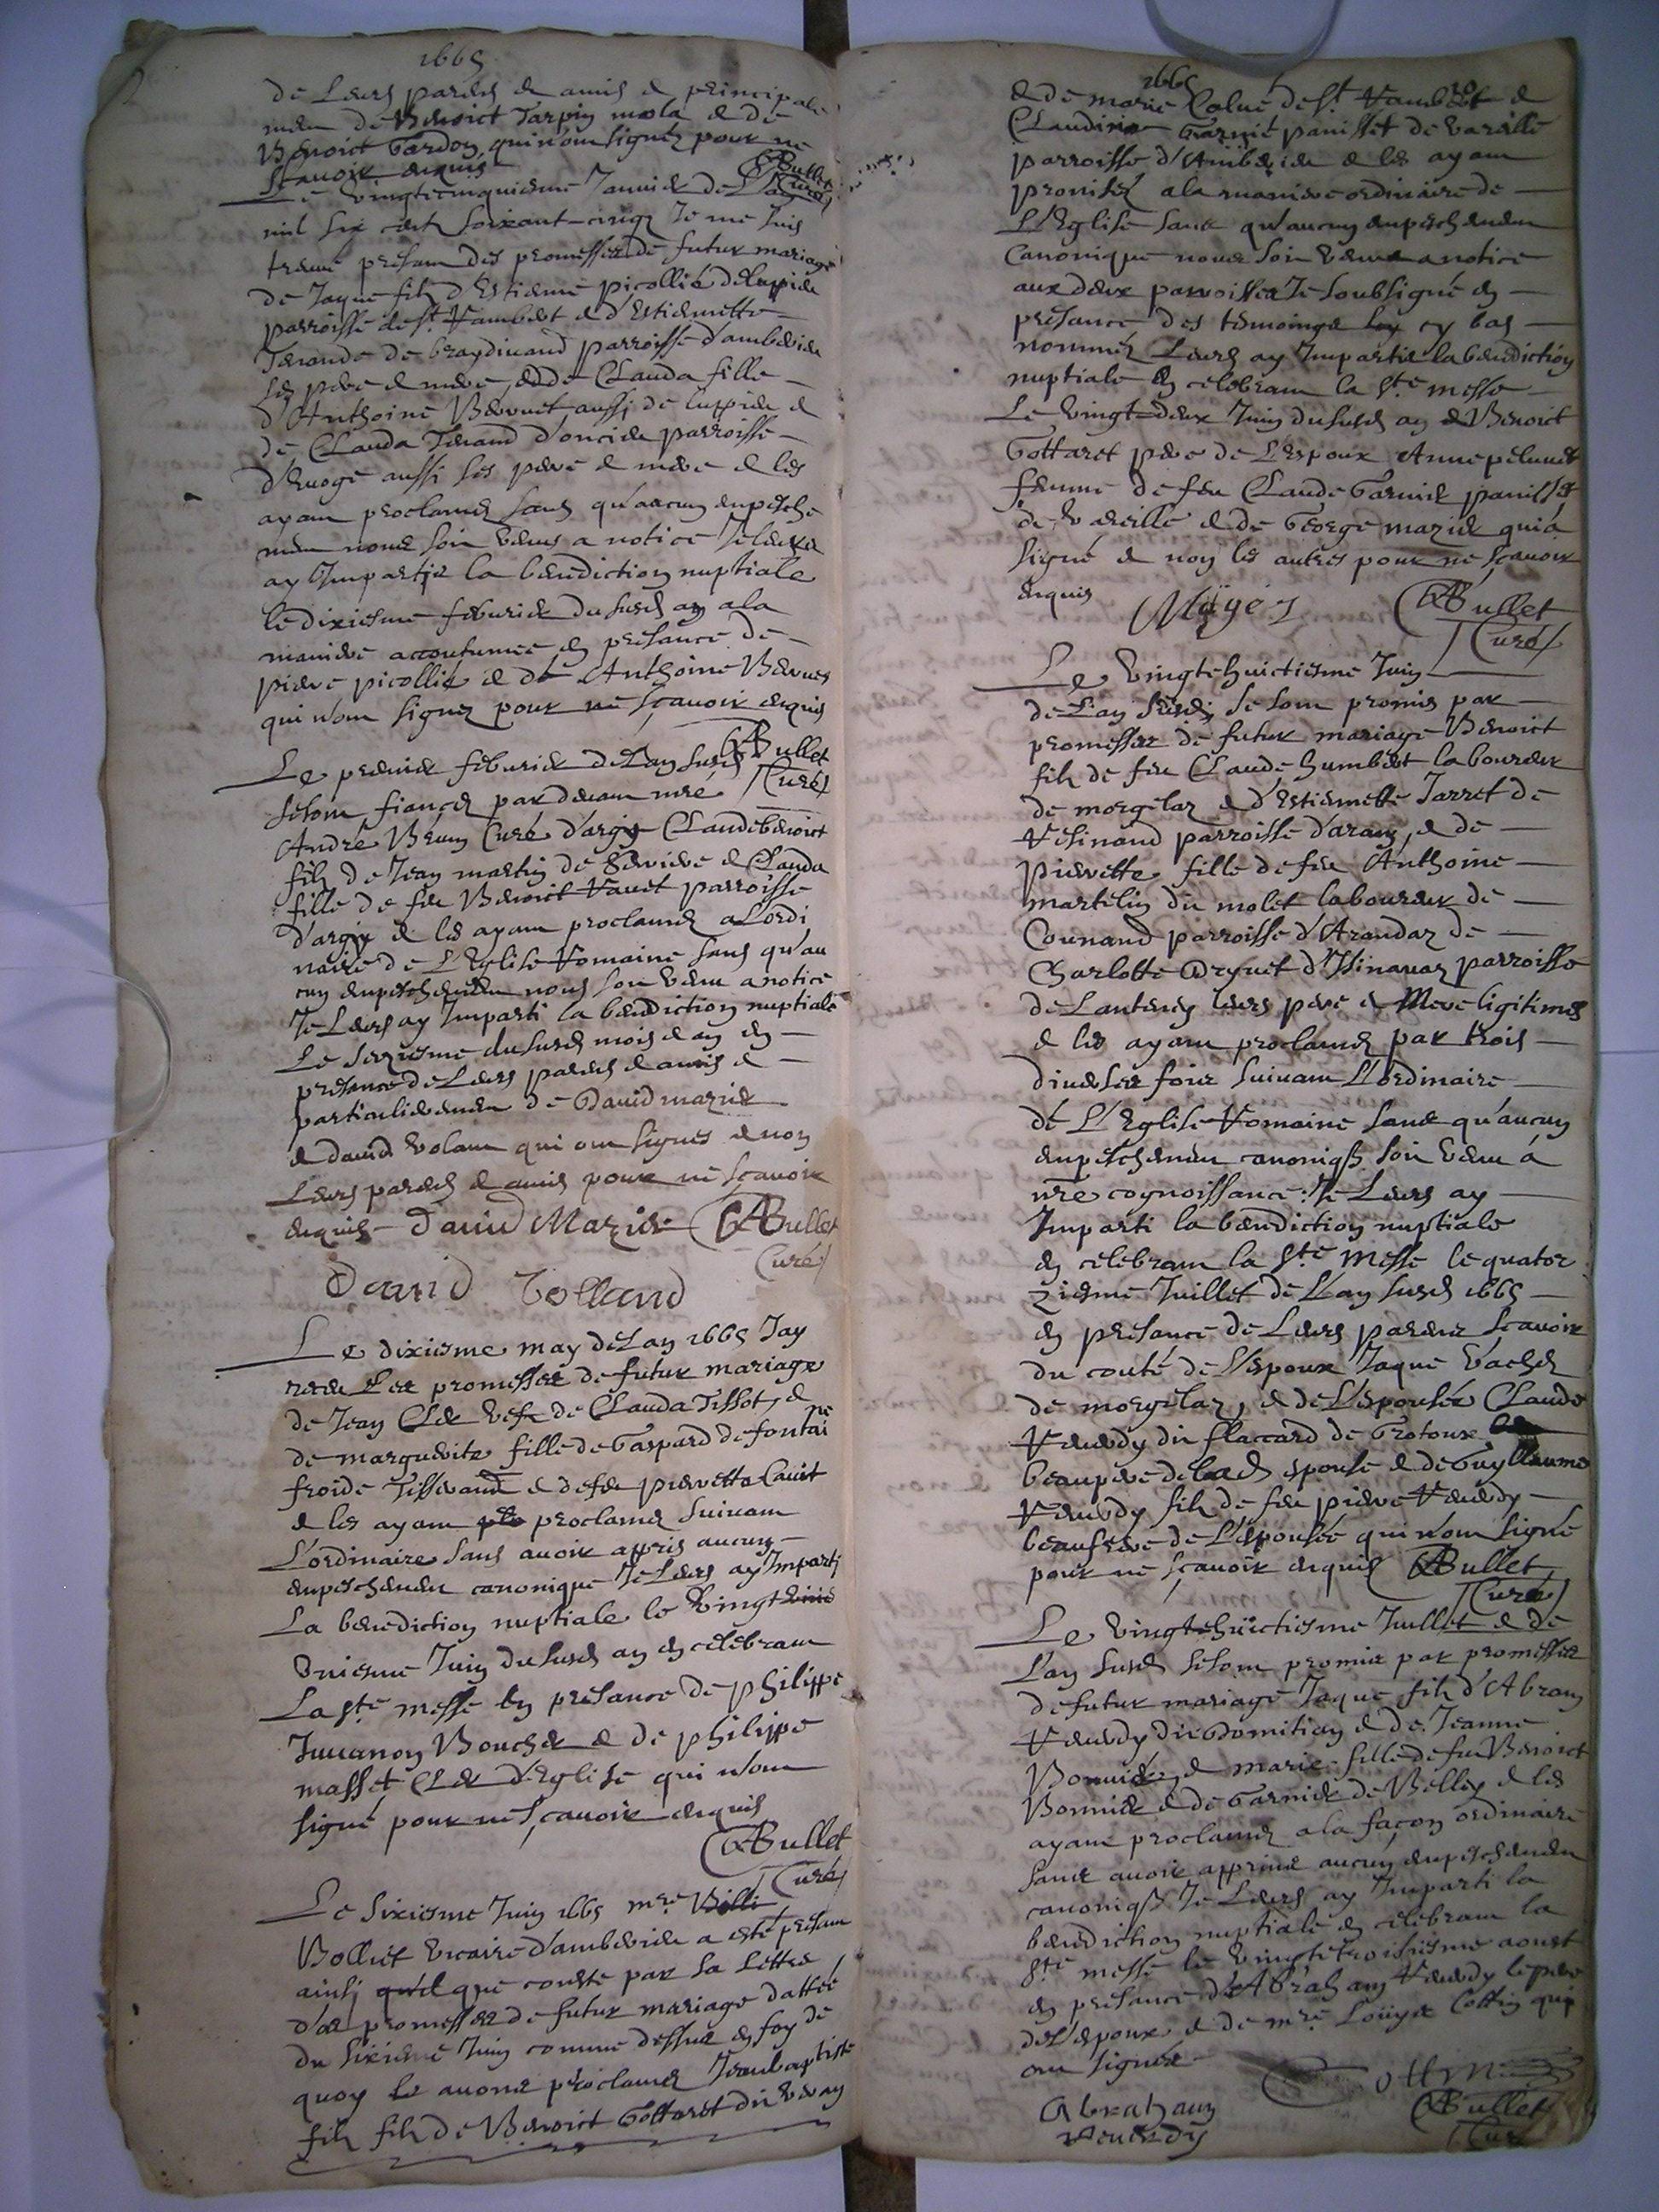 1665
de Leurs parens & amis & principale
men de Benoict Tarpin mola & de
Benoict Gardon qui n'om signéz pour ne
scavoir enquis
GABullet
Curé
Le vingtcinquiesme Januier de L'an
mil six cent soixant cinqz Je me suis
treuué presam des promesses de futur mariage
de Jaque filz d'Estienne picollié deluppieu
parroisse de st Rambert & d'Estiennette
Tenande de braydiuand parroisse d'amberieu
ses pere & mere, & de Clauda fille
d'Anthoine Beruet aussi de luppieu &
de Clauda Tenand d'oncieu parroisse
d'Euoge aussi ses pere & mere & les
ayam proclaméz sans qu'aucun enpesche
men nous soit venus a notice Je leurs
ay Impartie la benediction nuptiale
le dixiesme feburier du susd an a la
maniere accoutumee en presance de
pierre picollié & de Anthoine Beruet
qui n'om signez pour ne sçauoir enquis
GABullet
Curé
Le premier feburier de L'an susd
se som fiancéz par deuam mre
André Brun Curé d'argis Claudebenoict
filz de Jean martin de & Clauda
fille de feu Benoict Rauet parroisse
d'argis & les ayam proclaméz a Lordi
naire de L'Eglise Romaine sans qu'au
cun enpeschemen nous soit venu a notice
Je Leurs ay Imparti la benediction nuptiale
Le seziesme du susd mois & an en
presence de Leurs parens & amis &
particulieremen de Dauid mazuir
& dauid volam qui om signes & non
Leurs parens & amis pour ne sçauoir
enquis dauid Mazuir GABullet
Curé
Dauid Volland
Le dixiesme may de L'an 1665 Jay
receu Les promesses de futur mariage
de Jean Cler vefz de Clauda Tissot, &
de marguerite fille de Gaspard de fontai
ne
froide Tisserand & de feu pierrette Cauit
& les ayam proclaméz suiuam
L'ordinaire sans auoir appris aucun
enpeschemen canonique Je Leurs ay Imparti
La benediction nuptiale le vingt
vniesme Juin du susd an en celebram
La ste messe en presance de philippe
Juuanon Boucher & de philippe
masset Cler d'Eglise qui n'om
signé pour ne sçauoir enquis
GABullet
Curé
Le sixiesme Juin 1665 mre
Bolliet vicaire d'amberieu a esté presam
ainsi que conste par sa Lettre
d'es promesses de futur mariage dattée
du sixiesme Juin comme dessus en foy de
quoy auons proclaméz Jeanbaptiste
filz filz de Benoict Gottaret du
1665
& de marie Colué de st Rambert &
Claudine Garnié panisset de vareille
parroisse d'Ambérieu & les ayam
proniséz a la maniere ordinaire de
L'Eglise sans qu'aucun enpeschemen
Canonique nous soit venu a notice
aux deux parroisses Je soubsigné en
présance des témoings cy bas
nomméz Leurs ay Impartie la benediction
nuptiale en celebram la ste messe
Le vingt deux Juin du susd an & Benoict
Gottaret pere de L'Espoux Anne
femme de feu Claude Garnier panisset
de vareille & de George mazuir qui a
signé & non les autres pour ne sçauoir
enquis GABullet
Curé
Le vingt huictiesme Juin
de L'an susd se som promis par
promesses de futur mariage Benoict
filz de feu Claude humbert laboureur
de morgelaz & d'Estiennette Jarret de
Resinand parroisse d'aranz, & de
pierrette fille de feu Anthoine
martelin du molet laboureur de
Counand parroisse d'Arandaz de
Charlotte parroisse
de Lantenay leurs pere & Mere ligitimes
& les ayam proclaméz par trois
diuerses fois suiuam L'ordinaire
dé L'Eglise Romaine sans qu'aucun
enpeschemen canoniqß soit venu á
nre cognoissance: Je Leurs ay
Imparti la benediction nuptiale
en celebram la ste Messe le quator
ziesme Juillet de L'an susd 1665
en presance de Leurs parens sçauoir
du couté de l'espoux Jaque vacher
de morgelaz, & de L'espousée Claude
Reuerdy dit flaccard de Grotoux
beaupere de lad espouse & de Guyllaume
Reuerdy filz de feu pierre Reuerdy
beaufrere de L'espousée qui n'om signé
pour ne sçauoir enquis GABullet
Curé
Le vingtehuictiesme Juillet & de
L'an susd se som promis par promesses
de futur mariage Jaque filz d'Abram
Reuerdy dit Domitian & de Jeanne
Bonnier, & marie fille de feu Benoict
Bonnier & de Garnier de Belley & les
ayam proclaméz a la façon ordinaire
sans auoir apprins aucun enpeschemen
canoniqß Je Leurs ay Imparti la
benediction nuptiale en celebram la
ste messe le vingttroisiesme aoust
en presance d'Abraham Reuerdy le pere
de L'espoux & de mre Louys Cottin qui
om signés
Cottin
Abraham
Reuerdy
GABullet
Curé